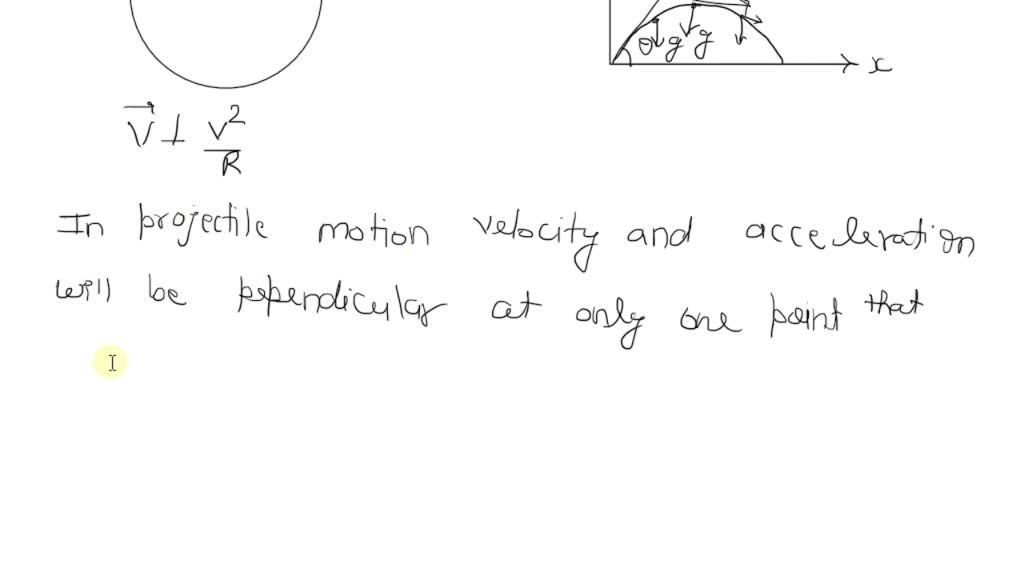 θ g g
x
V⃗ ⊥ V²/R
In projectile motion velocity and acceleration
will be pependicular at only one point that